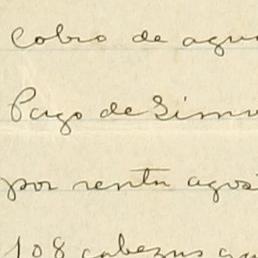 Cobro de agu
Pago de Sim
por renta agos
108 cabezas